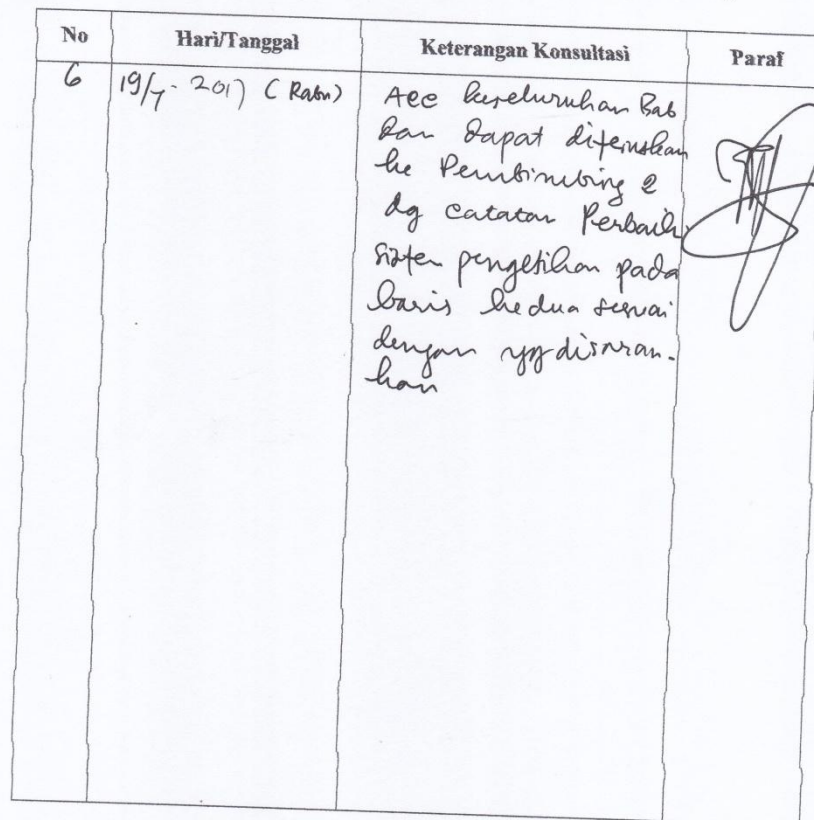 No Hari/Tanggal Keterangan Konsultasi Paraf
6 19/7-2017 (Rabu) Acc keseluruhan Bab
dan dapat diteruskan
ke Pembimbing 2
dg catatan Perbaiki
sistem pengetikan pada
baris kedua sesuai
dengan yg disaran-
kan